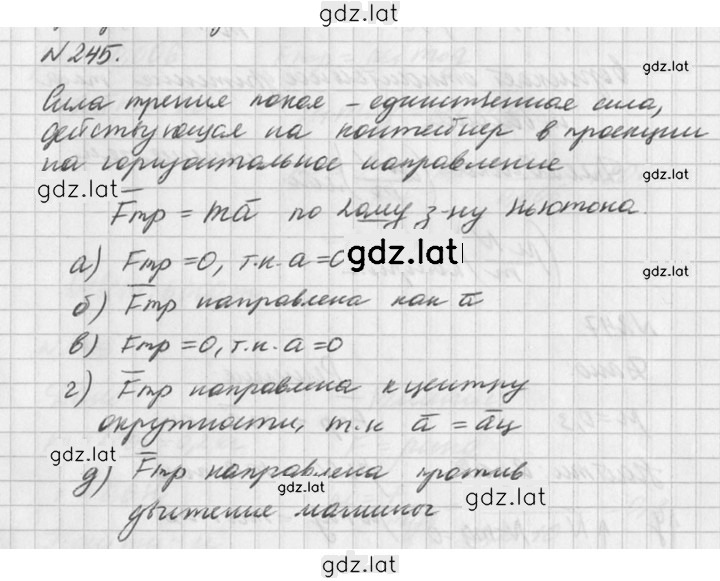 gdz.lat
N 245.
gdz.lat
Сила трения покоя – единственная сила,
действующая на контейнер в проекции
на горизонтальное направление
gdz.lat
gdz.lat
F̅тр = ma̅ по 2ому з-ну Ньютона.
gdz.lat
а) Fтр = 0, т.к. a = 0
gdz.lat
б) F̅тр направлена как a̅
в) Fтр = 0, т.к. a = 0
г) F̅тр направлена к центру
gdz.lat
окружности, т.к a̅ = a̅ц
gdz.lat
д) F̅тр направлена против
gdz.lat
gdz.lat
движения машины
gdz.lat